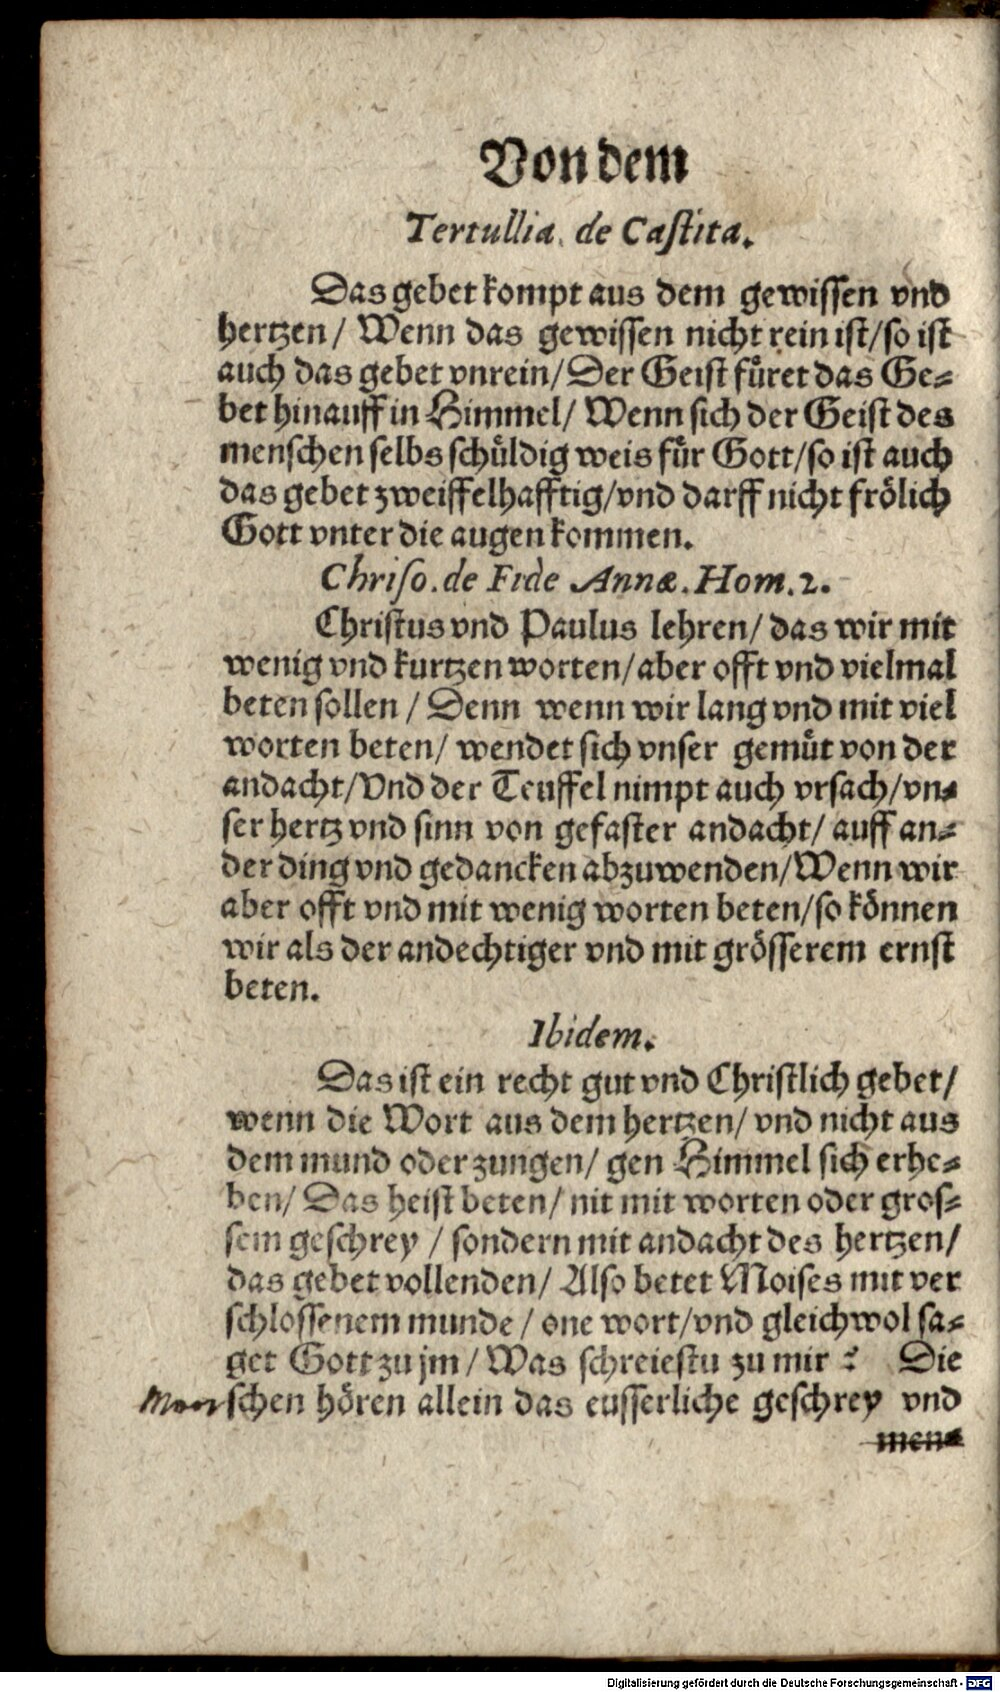 Von dem
Tertullia. de Castita.
Das gebet kompt aus dem gewissen vnd
hertzen / Wenn das gewissen nicht rein ist/so ist
auch das gebet vnrein/Der Geist füret das Ge-
bet hinauff in Himmel/ Wenn sich der Geist des
menschen selbs schüldig weis für Gott/so ist auch
das gebet zweiffelhafftig/vnd darff nicht frölich
Gott vnter die augen kommen.
Chriso. de Fide Annæ. Hom. 2.
Christus vnd Paulus lehren/ das wir mit
wenig vnd kurtzen worten/aber offt vnd vielmal
beten sollen / Denn wenn wir lang vnd mit viel
worten beten/ wendet sich vnser gemüt von der
andacht/Vnd der Teuffel nimpt auch vrsach/vn-
ser hertz vnd sinn von gefaster andacht/ auff an-
der ding vnd gedancken abzuwenden/Wenn wir
aber offt vnd mit wenig worten beten/so können
wir als der andechtiger vnd mit grösserem ernst
beten.
Ibidem.
Das ist ein recht gut vnd Christlich gebet/
wenn die Wort aus dem hertzen/ vnd nicht aus
dem mund oder zungen/ gen Himmel sich erhe-
ben/ Das heist beten/ nit mit worten oder gros-
sem geschrey / sondern mit andacht des hertzen/
das gebet vollenden/ Also betet Moises mit ver
schlossenem munde / one wort/vnd gleichwol sa-
get Gott zu jm / Was schreiestu zu mir ? Die
Men schen hören allein das eusserliche geschrey vnd
men-
Digitalisierung gefördert durch die Deutsche Forschungsgemeinschaft - DFG